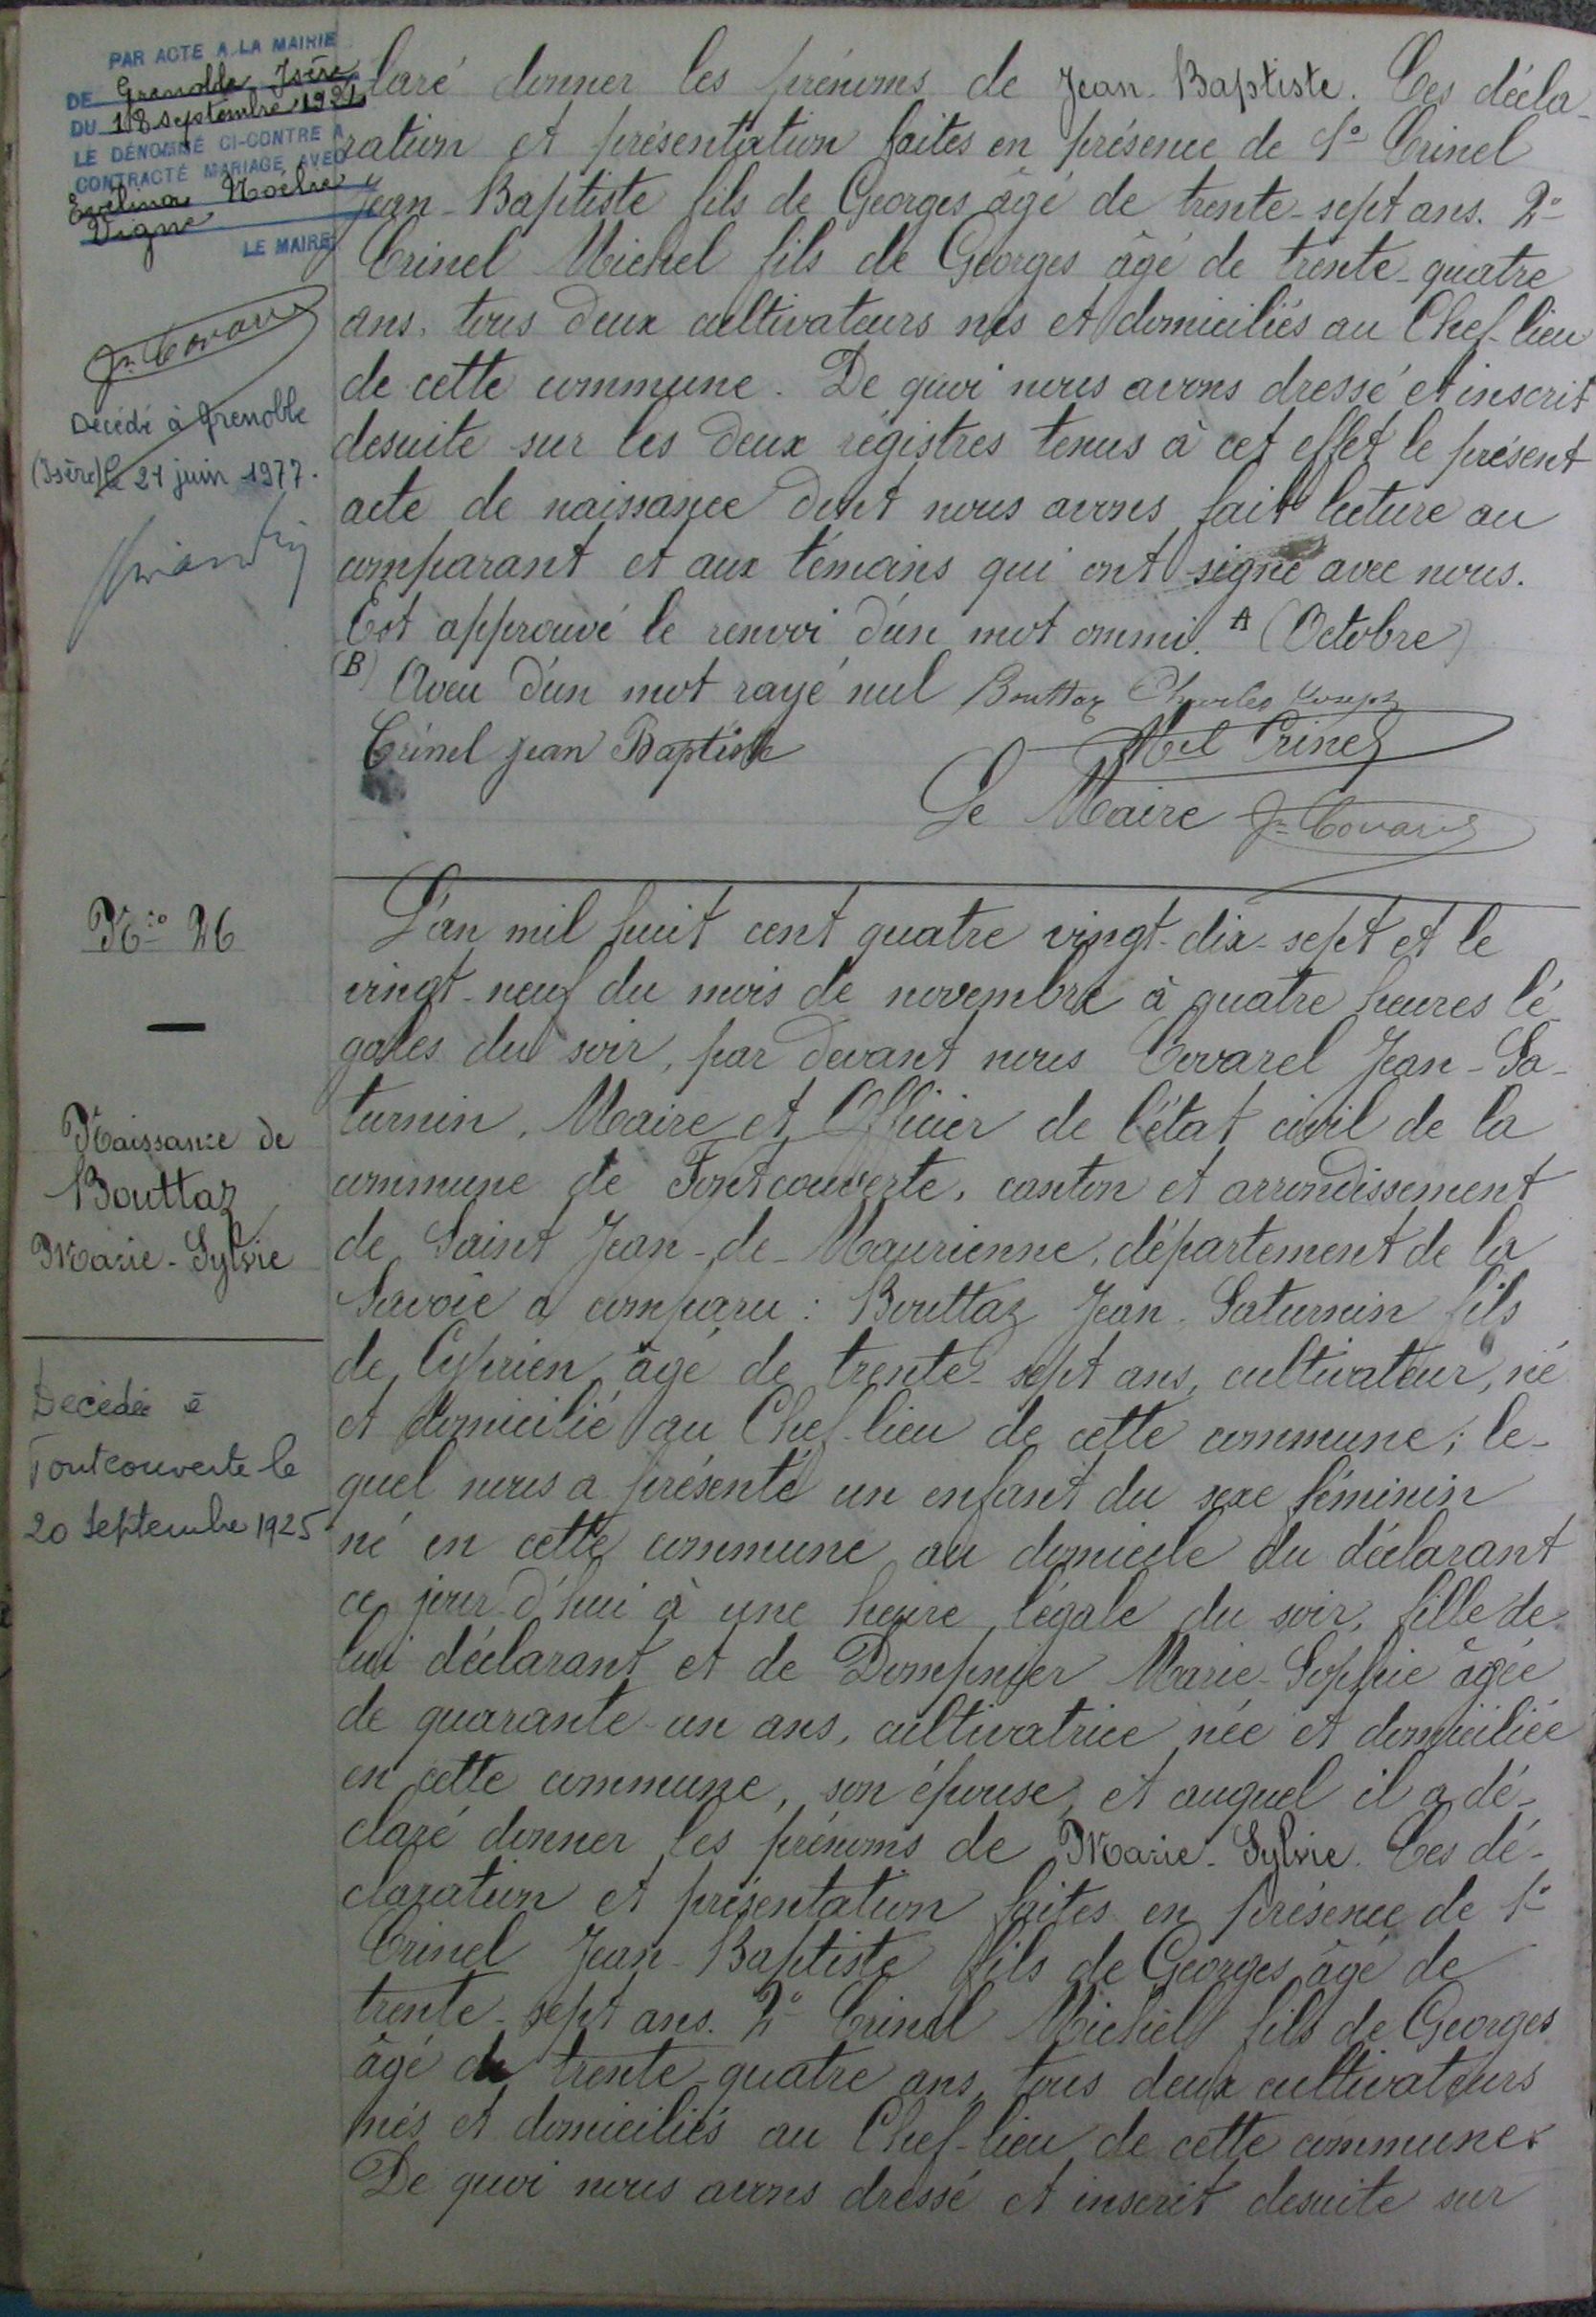 PAR ACTE A LA MAIRIE
DE Grenoble Isère
DU 18 septembre 1921
LE DÉNOMMÉ CI-CONTRE A
CONTRACTÉ MARIAGE AVEC
Evelina Noélie
Vigne
LE MAIRE
Jn Covarel
Décédé à Grenoble
(Isère) le 21 juin 1977.
claré donner les prénoms de Jean-Baptiste. Ces décla-
ration et présentation faites en présence de 1° Crinel
Jean-Baptiste fils de Georges âgé de trente-sept ans. 2°
Crinel Michel fils de Georges âgé de trente-quatre
ans, tous deux cultivateurs nés et domiciliés au Chef-lieu
de cette commune. De quoi nous avons dressé et inscrit
desuite sur les deux régistres tenus à cet effet le présent
acte de naissance dont nous avons fait lecture au
comparant et aux témoins qui ont signé avec nous.
Est approuvé le renvoi d'un mot ommi. A (Octobre)
(B) Aveu d'un mot rayé nul Bouttaz Charles Joseph
Crinel Jean Baptiste
Mel Crinel
Le Maire Jn Covarel
N° 26
Naissance de
Bouttaz
Marie-Sylvie
Décédée à
Fontcouverte le
20 septembre 1925
L'an mil huit cent quatre vingt-dix-sept et le
vingt-neuf du mois de novembre à quatre heures lé-
gales du soir, par devant nous Covarel Jean-Sa-
turnin, Maire et Officier de l'état civil de la
commune de Fontcouverte, canton et arrondissement
de Saint Jean-de-Maurienne, département de la
Savoie a comparu : Bouttaz Jean-Saturnin fils
de Cyprien âgé de trente-sept ans, cultivateur, né
et domicilié au Chef-lieu de cette commune; le-
quel nous a présenté un enfant du sexe féminin
né en cette commune au domicile du déclarant
ce jour d'hui à une heure légale du soir, fille de
lui déclarant et de Dompnier Marie-Sophie âgée
de quarante-un ans, cultivatrice née et domiciliée
en cette commune, son épouse, et auquel il a dé-
claré donner les prénoms de Marie-Sylvie. Ces dé-
claration et présentation faites en présence de 1°
Crinel Jean-Baptiste fils de Georges âgé de
trente-sept ans. 2° Crinel Michel fils de Georges
âgé de trente-quatre ans, tous deux cultivateurs
nés et domiciliés au Chef-lieu de cette commune.
De quoi nous avons dressé et inscrit desuite sur